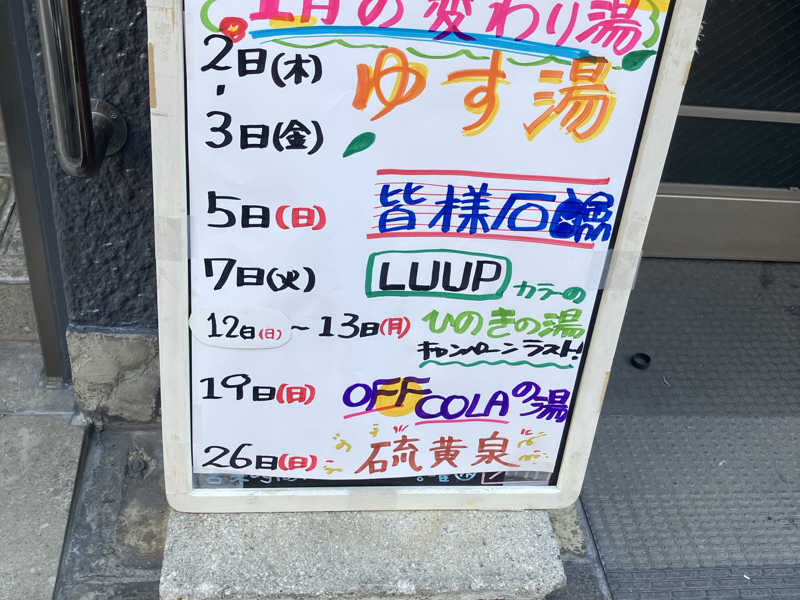 1月の変わり湯
2日(木)
3日(金)
ゆず湯
5日(日) 皆様石鹸
7日(火) LUUPカラーの
12日(日)～13日(月) ひのきの湯
キャンペーンラスト!
19日(日) OFF COLAの湯
26日(日) 硫黄泉